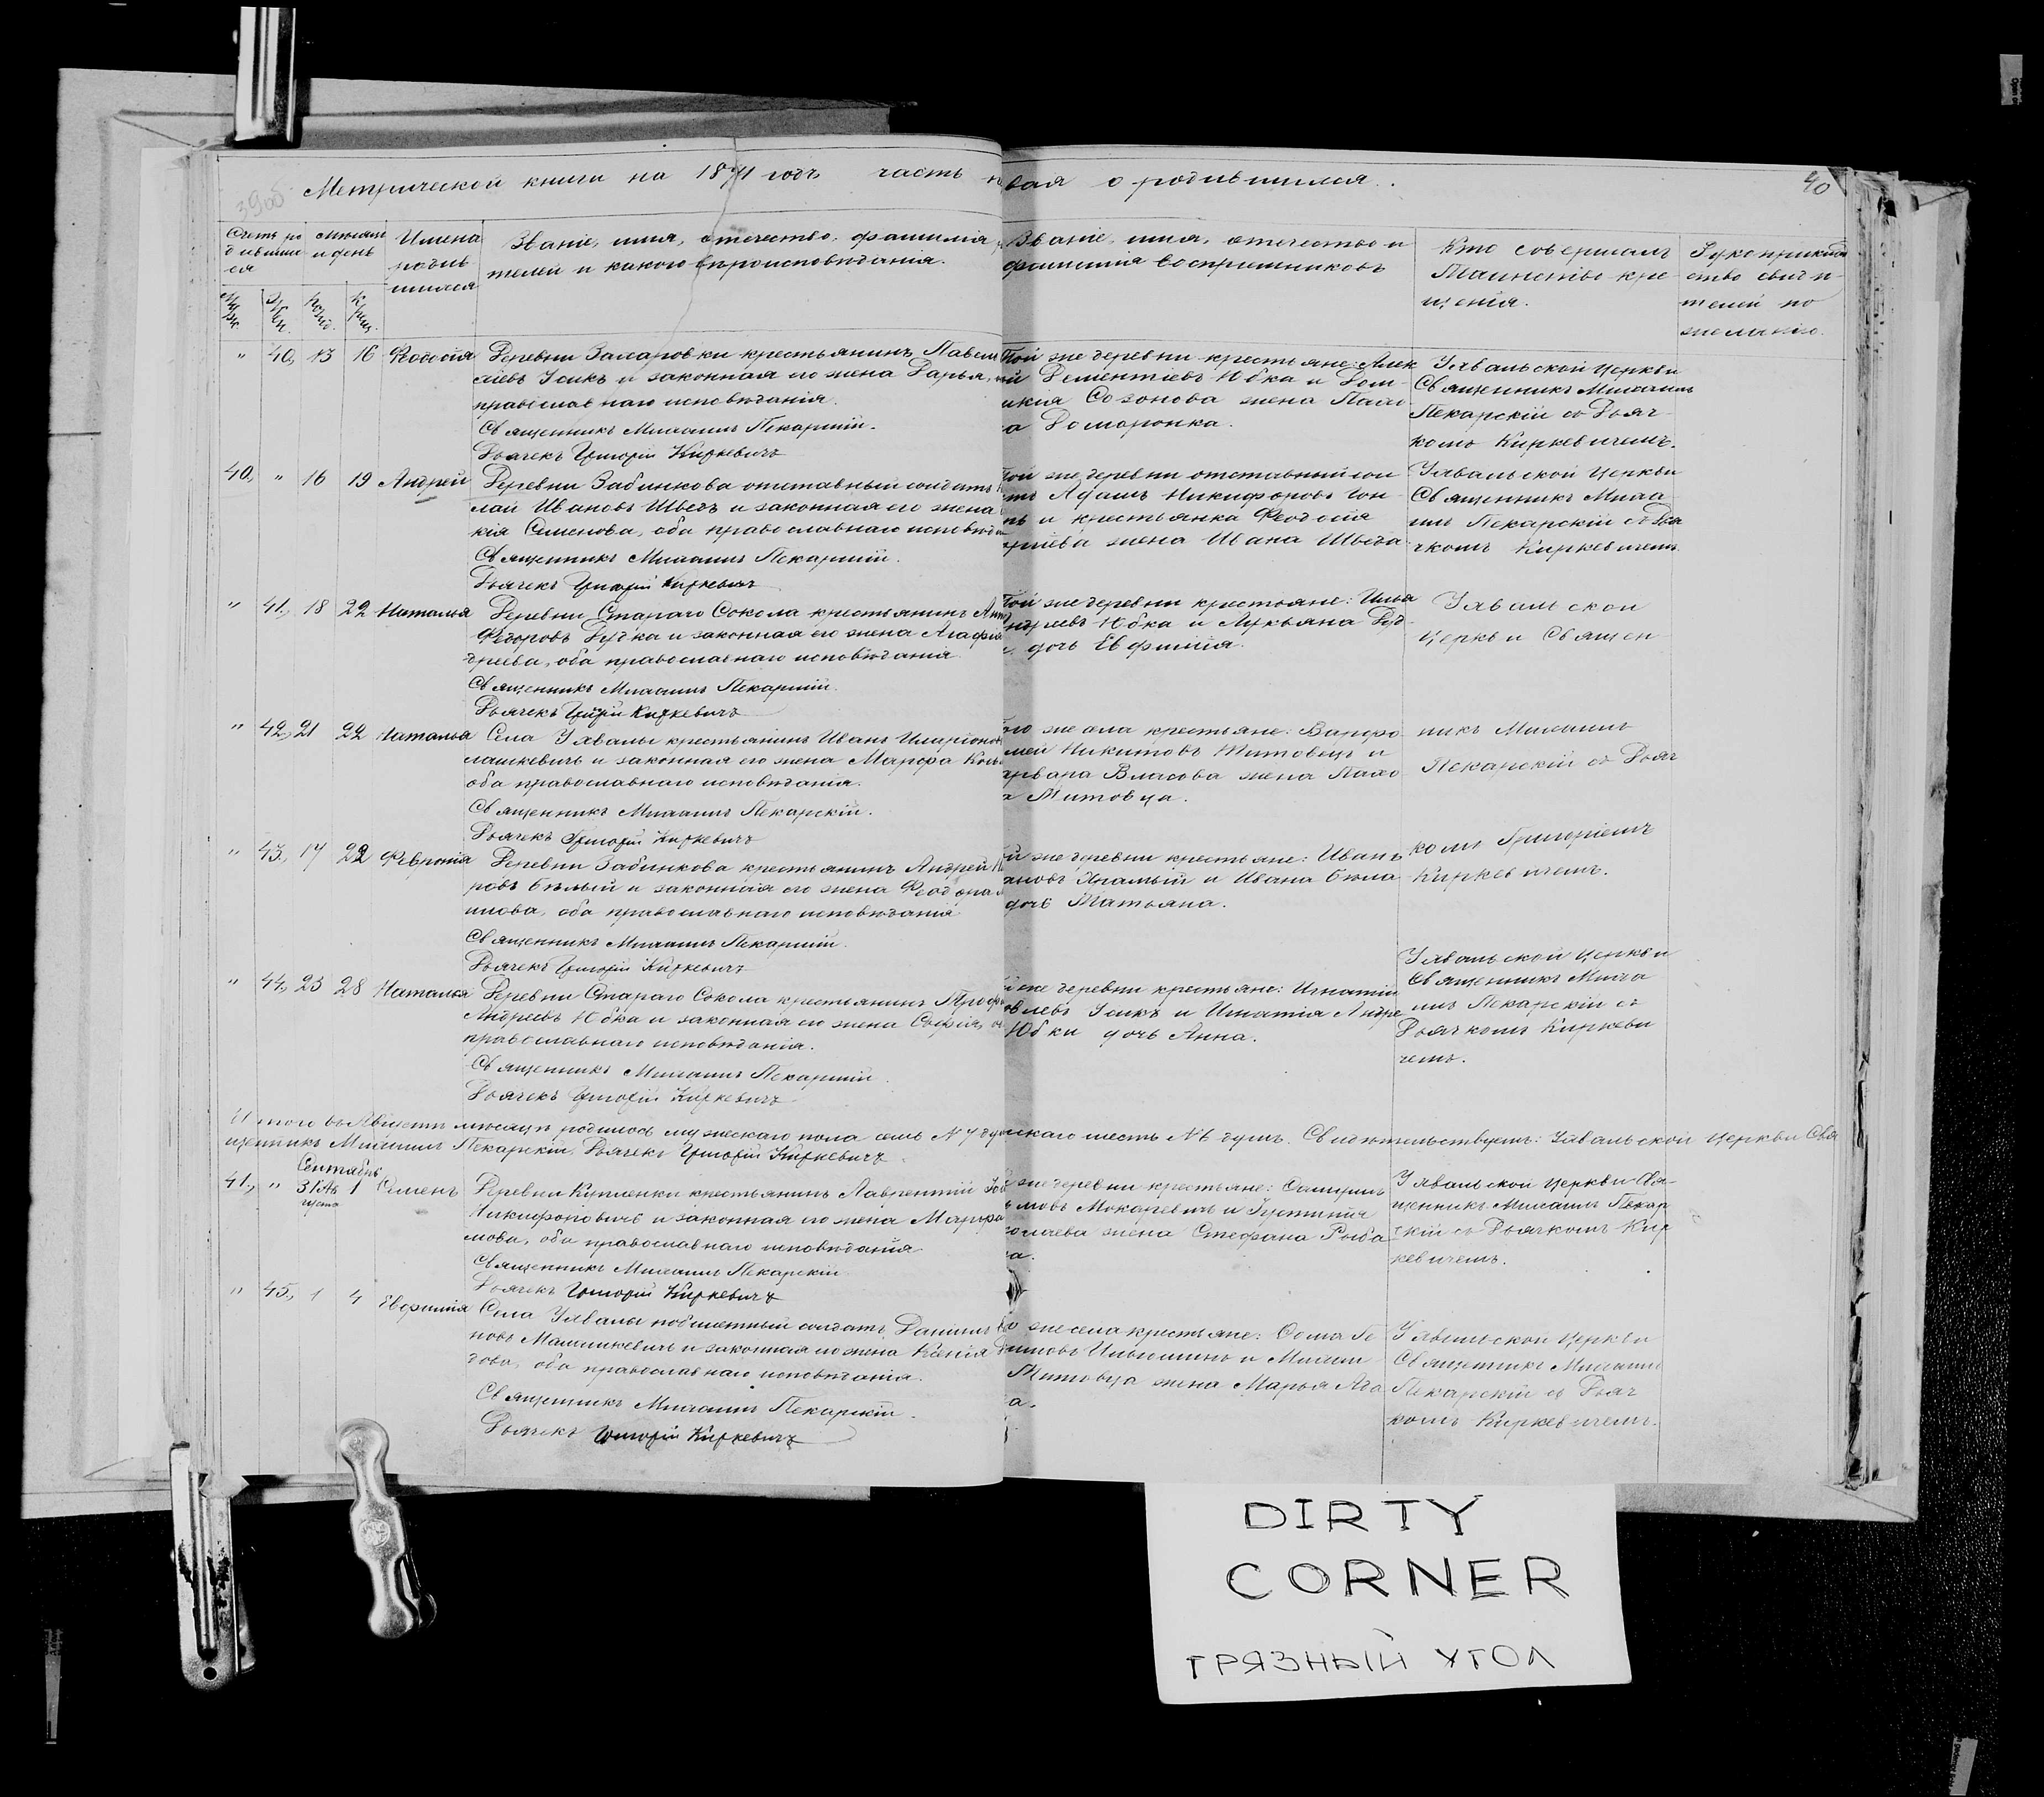 39об
Метрической книги на 1871 годъ часть п
вая о родившихся.
40
Счетъ ро
дивших
ся
мѣсяцъ
и день
Имена
родив
шихся
Званіе, имя, отечество, фамилія
телей и какого вѣроисповѣданія.
Званіе, имя, отечество и
фамилія воспріемниковъ
Кто совершалъ
Таинство кре
щенія.
Рукоприклад
ство свидѣ
телей по
желанію.
" 40, 13 16 Феодосія
Деревни Захаровки крестьянинъ Павелъ
сіевъ Усикъ и законная его жена Дарья,
православнаго исповѣданія.
Священникъ Михаилъ Пекарскій.
Дьячекъ Григорій Киркевичъ
той же деревни крестьяне: Алек
ѣй Дементіевъ Юбка и Дом
икія Созонова жена
а Доморонка.
Ухвальской церкви
Священникъ Михаилъ
Пекарскій съ Дьяч
комъ Киркевичемъ.
40, " 16 19 Андрей
Деревни Забѣнкова отставный солдатъ
лай Ивановъ Швецъ и законная его жена
кія Семенова, оба православнаго исповѣд
Священникъ Михаилъ Пекарскій.
Дьячекъ Григорій Киркевичъ
той же деревни отставный сол
тъ Адамъ Никифоровъ Гон
ъ и крестьянка Феодосія
жена Ивана Швеца
Ухвальской церкви
Священникъ Миха
илъ Пекарскій съ Дья
чкомъ Киркевичемъ.
" 41, 18 22 Наталья
Деревни Стараго Сокола крестьянинъ Ант
Федоровъ Дудка и законная его жена Агафія
дреева, оба православнаго исповѣданія
Священникъ Михаилъ Пекарскій.
Дьячекъ Григорій Киркевичъ
той же деревни крестьяне: Илья
ндреевъ Юбка и Лукьяна Дуд
дочь Евфимія.
Ухвальской
церкви Священ
" 42, 21 22 Наталья
Села Ухвалы крестьянинъ Иванъ Иларіонов
лашкевичъ и законная его жена Марфа
оба православнаго исповѣданія.
Священникъ Михаилъ Пекарскій.
Дьячекъ Григорій Киркевичъ
ого же села крестьяне: Варфо
мей Никитовъ Титовецъ и
рвара Власова жена
а Титовца.
никъ Михаилъ
Пекарскій съ Дьяч
" 43, 17 22 Февронія
Деревни Забѣнкова крестьянинъ Андрей
ровъ Бѣлый и законная его жена Феодора
имова, оба православнаго исповѣданія
Священникъ Михаилъ Пекарскій.
Дьячекъ Григорій Киркевичъ
й же деревни крестьяне: Иванъ
ановъ Храмый и Ивана Бѣла
дочь Татьяна.
комъ Григоріемъ
Киркевичемъ.
" 44, 25 28 Наталья
Деревни Стараго Сокола крестьянинъ Проф
Андреевъ Юбка и законная его жена Софія,
православнаго исповѣданія.
Священникъ Михаилъ Пекарскій.
Дьячекъ Григорій Киркевичъ
й же деревни крестьяне: Игнатій
овлевъ Усикъ и Игнатія Андре
Юбки дочь Анна.
Ухвальской церкви
Священникъ Миха
илъ Пекарскій съ
Дьячкомъ Киркеви
чемъ.
Итого въ Августѣ мѣсяцѣ родилось мужескаго пола семь № 7 ду
нскаго шесть № 6 душъ. Свидѣтельствуемъ: Ухвальской церкви Свя
щенникъ Михаилъ Пекарскій, Дьячекъ Григорій Киркевичъ.
Сентябрь
41, " 31 Ав
густа 1 Семенъ
Деревни Купленки крестьянинъ Лаврентій
Никифоровичъ и законная его жена Марфа
мова, оба православнаго исповѣданія
Священникъ Михаилъ Пекарскій
Дьячекъ Григорій Киркевичъ
же деревни крестьяне: Самуилъ
имовъ Макаревичъ и Іустинія
колаева жена Стефана Рыба
а.
Ухвальской церкви Свя-
щенникъ Михаилъ Пекар
скій съ Дьячкомъ Кир
кевичемъ.
" 45, 1 4 Евфимія
Села Ухвалы побилетный солдатъ Даніилъ
новъ Малашкевичъ и законная его жена Ксенія
дова, оба православнаго исповѣданія.
Священникъ Михаилъ Пекарскій.
Дьячекъ Григорій Киркевичъ
о же села крестьяне: Фома
имовъ Ильюшинъ и Михаи
Титовца жена Марья Ага
а.
Ухвальской церкви
Священникъ Михаилъ
Пекарскій съ Дьяч
комъ Киркевичемъ.
DIRTY
CORNER
ГРЯЗНЫЙ УГОЛ